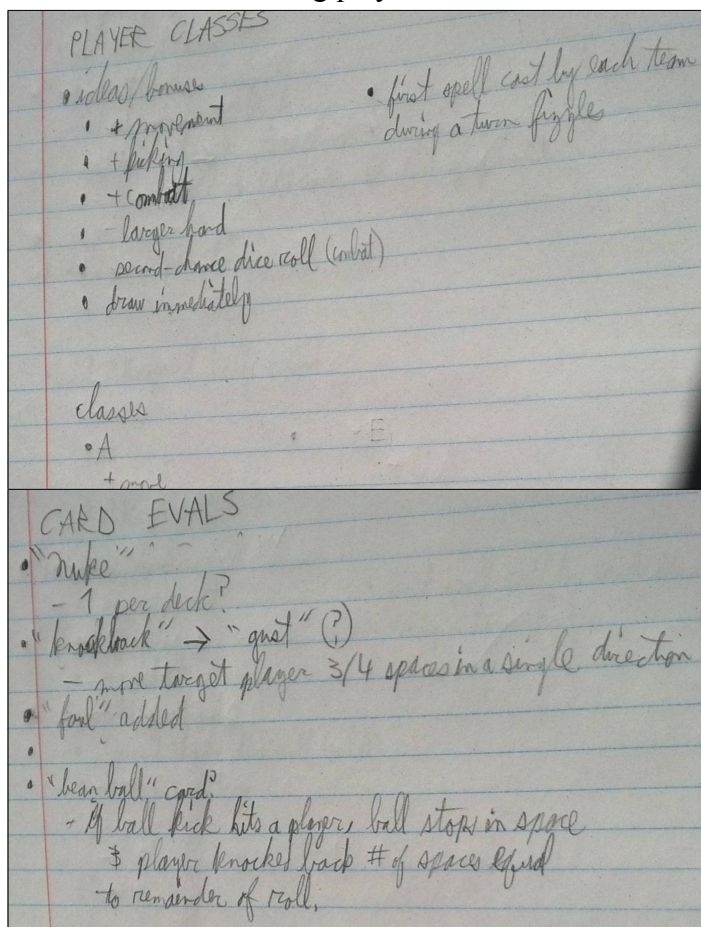 PLAYER CLASSES
• ideas/bonuses
• + movement
• + kicking
• + combat
• - larger hand
• second-chance dice roll (combat)
• draw immediately
• first spell cast by each team
during a turn fizzles
classes
• A
+ move
E
CARD EVALS
• "nuke"
- 1 per deck?
• "knockback" → "gust" (?)
- move target player 3/4 spaces in a single direction
• "foul" added
•
• "bean ball" card?
- If ball kick hits a player, ball stops in space
& player knocked back # of spaces equal
to remainder of roll.